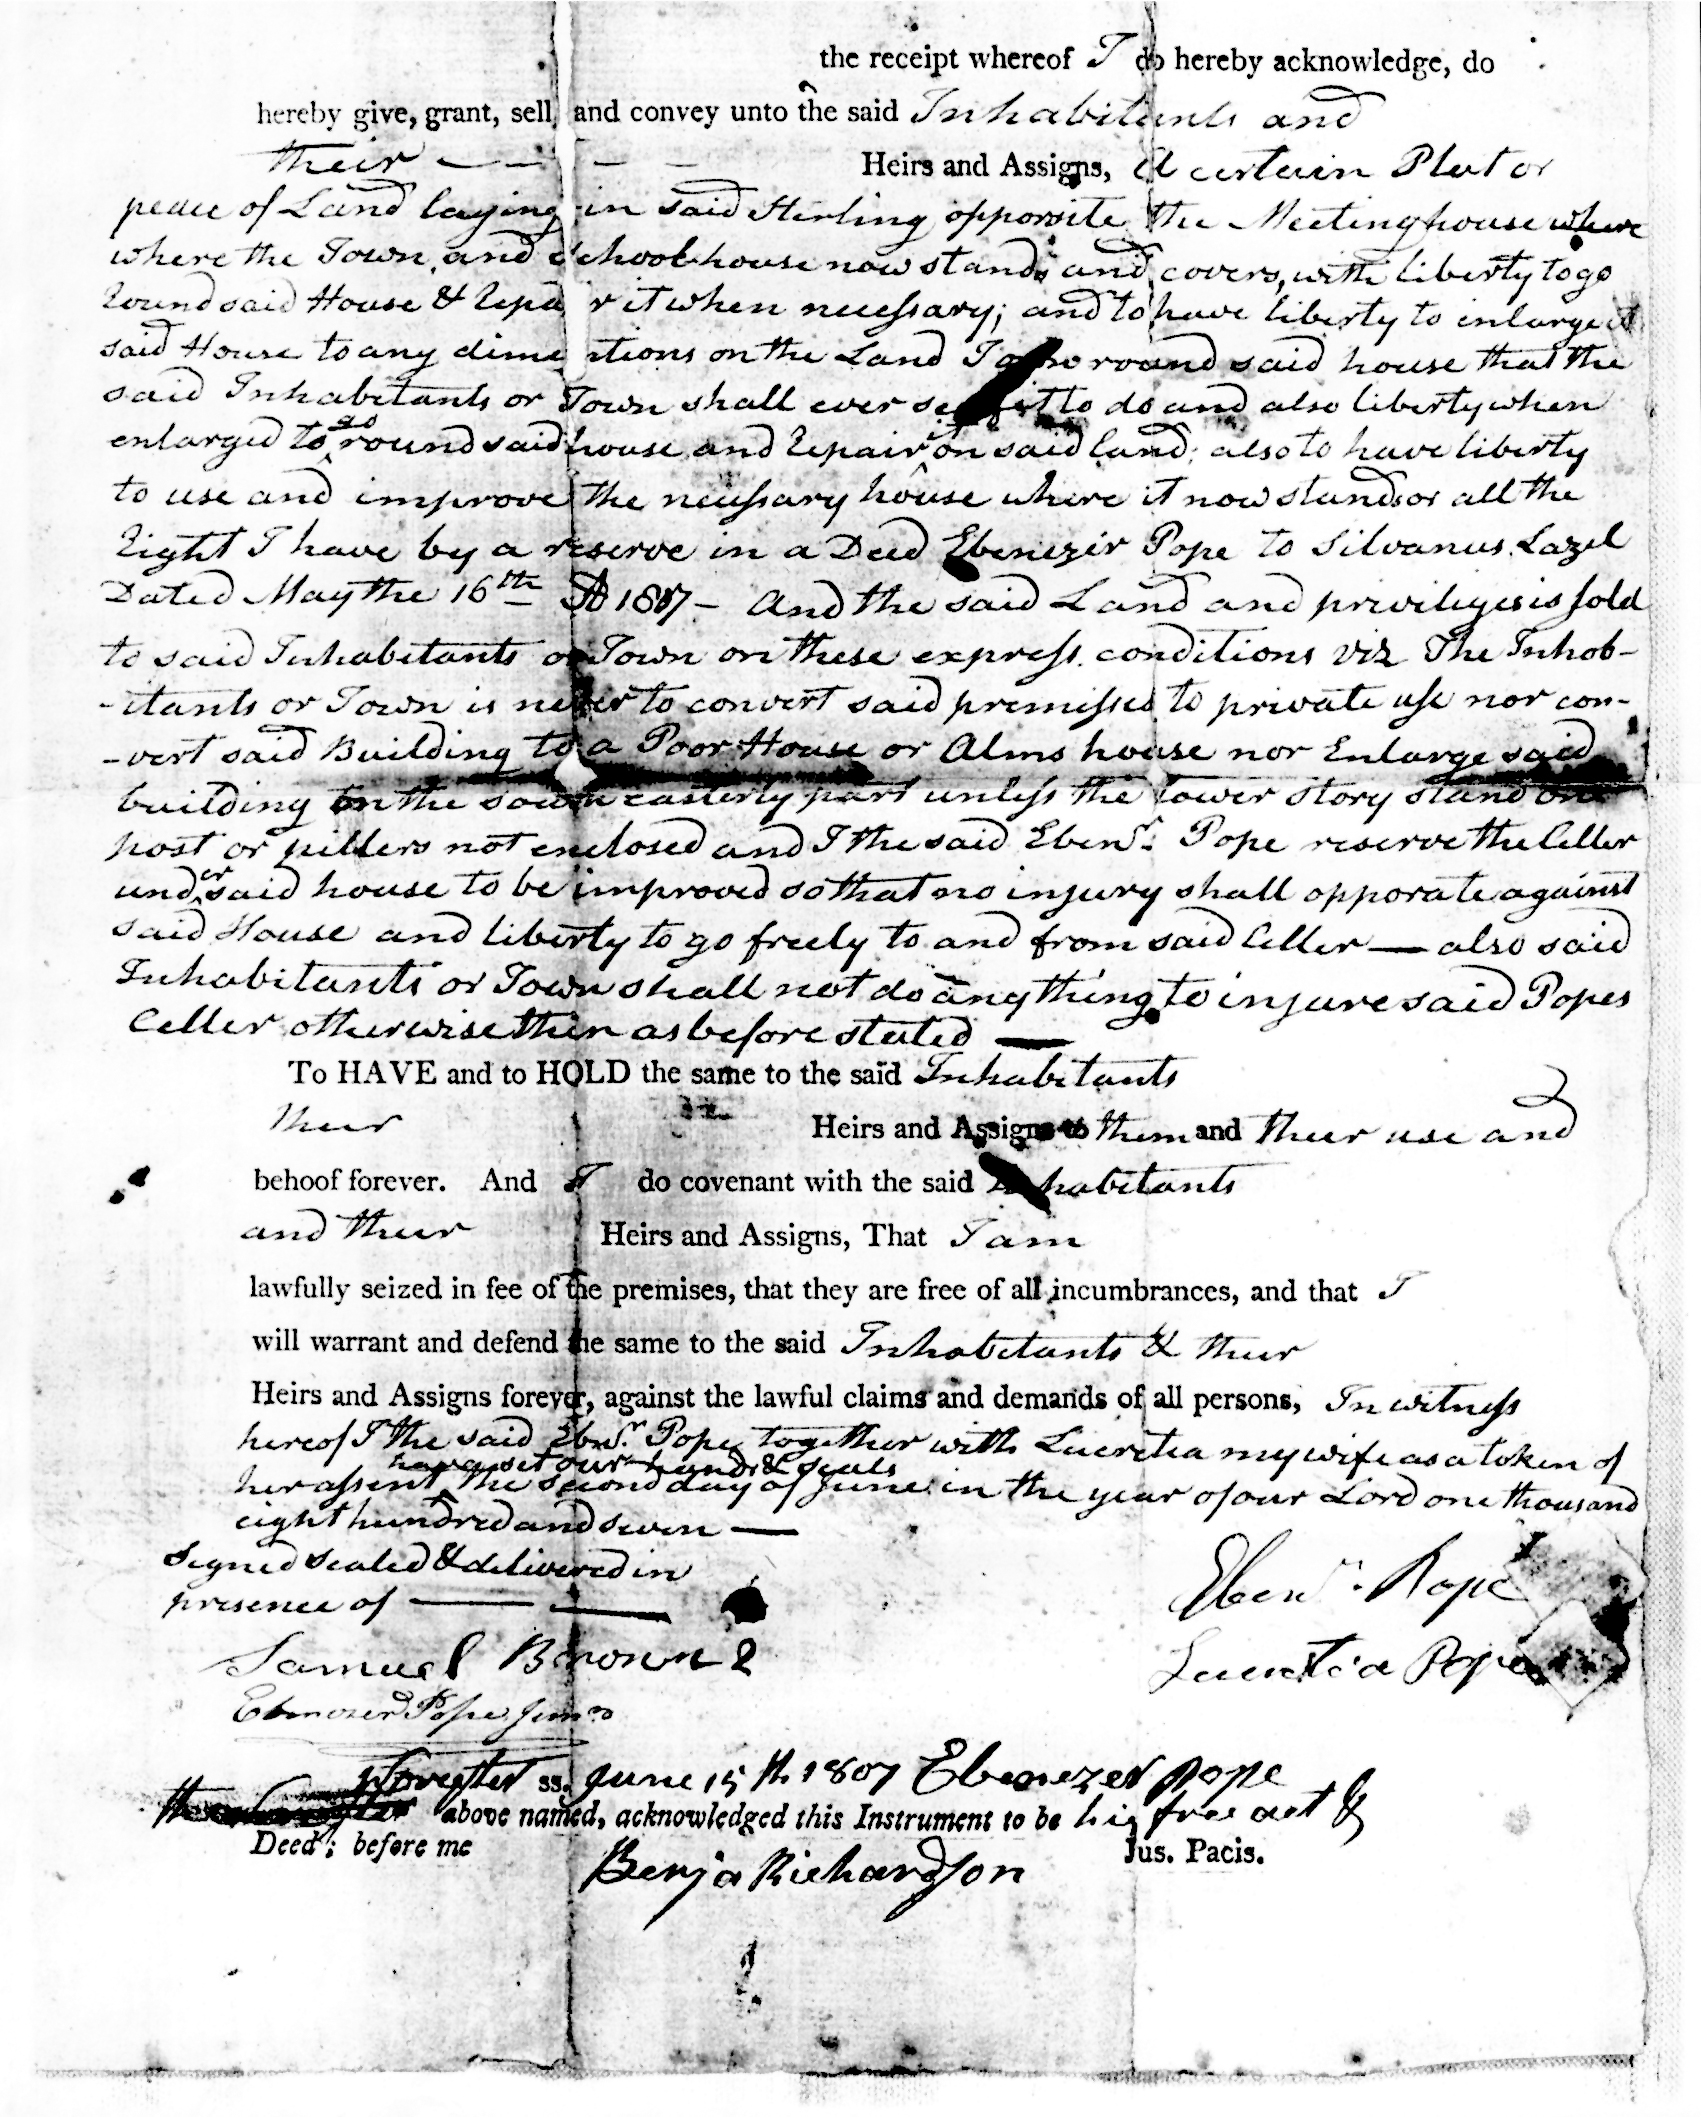 the receipt whereof I do hereby acknowledge, do
hereby give, grant, sell, and convey unto the said Inhabitants and
their — — — Heirs and Assigns, A certain Plat or
peace of Land laying in said Sterling opporsite the Meetinghouse where
where the Town and Schoolhouse now stands and covers, with liberty to go
round said House & repair it when necessary; and to have liberty to inlarge
said House to any dimentions on the Land I round said house that the
said Inhabetants or Town shall ever see fit to do and also liberty when
enlarged to go round said house and repair it on said land; also to have liberty
to use and improve the necessary house where it now stands or all the
right I have by a reserve in a Deed Ebenezer Pope to Silvanus Lazel
Dated May the 16th AD 1807 – And the said Land and priviliges is sold
to said Inhabetants or Town on these express conditions viz The Inhab-
-itants or Town is never to convert said premisses to private use nor con-
-vert said Building to a Poor House or Alms house nor Enlarge said
building on the south easterly part unless the lower story stand on
post or pillers not enclosed and I the said Ebenr. Pope reserve the Celler
under said house to be improved so that no injury shall opporate against
said House and liberty to go freely to and from said Celler — also said
Inhabitants or Town shall not do any thing to injure said Popes
Celler otherwise then as before stated —
To HAVE and to HOLD the same to the said Inhabetants
their Heirs and Assigns to them and their use and
behoof forever. And I do covenant with the said Inhabitants
and their Heirs and Assigns, That I am
lawfully seized in fee of the premises, that they are free of all incumbrances, and that I
will warrant and defend the same to the said Inhabetants & their
Heirs and Assigns forever, against the lawful claims and demands of all persons, In witness
hereof I the said Ebenr. Pope together with Lucretia my wife as a token of
have set our hands & seals
her assent the second day of June in the year of our Lord one thousand
eight hundred and seven —
Signed sealed & delivered in
presence of — —
Samuel Brown 2
Ebenezer Pope Junr
Ebenr. Pope
Lucretia Pope
Worcester ss. June 15th 1807 Ebenezer Pope
the above named, acknowledged this Instrument to be his free act &
Deed; before me Jus. Pacis.
Benja Richardson